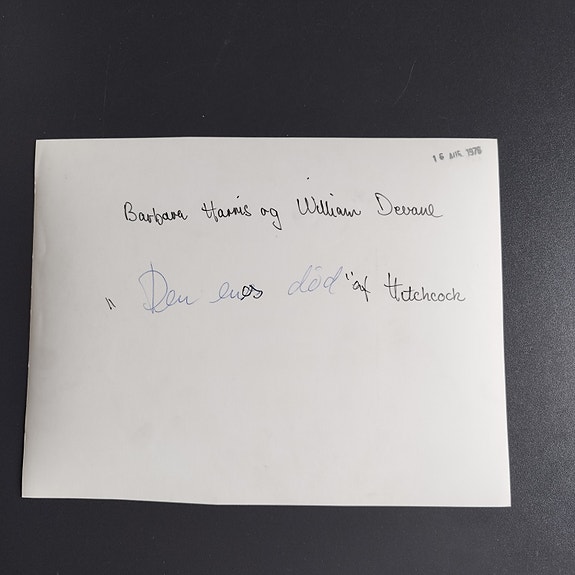 16 AUG. 1976
Barbara Harris og William Devane
"Den enes død" af Hitchcock